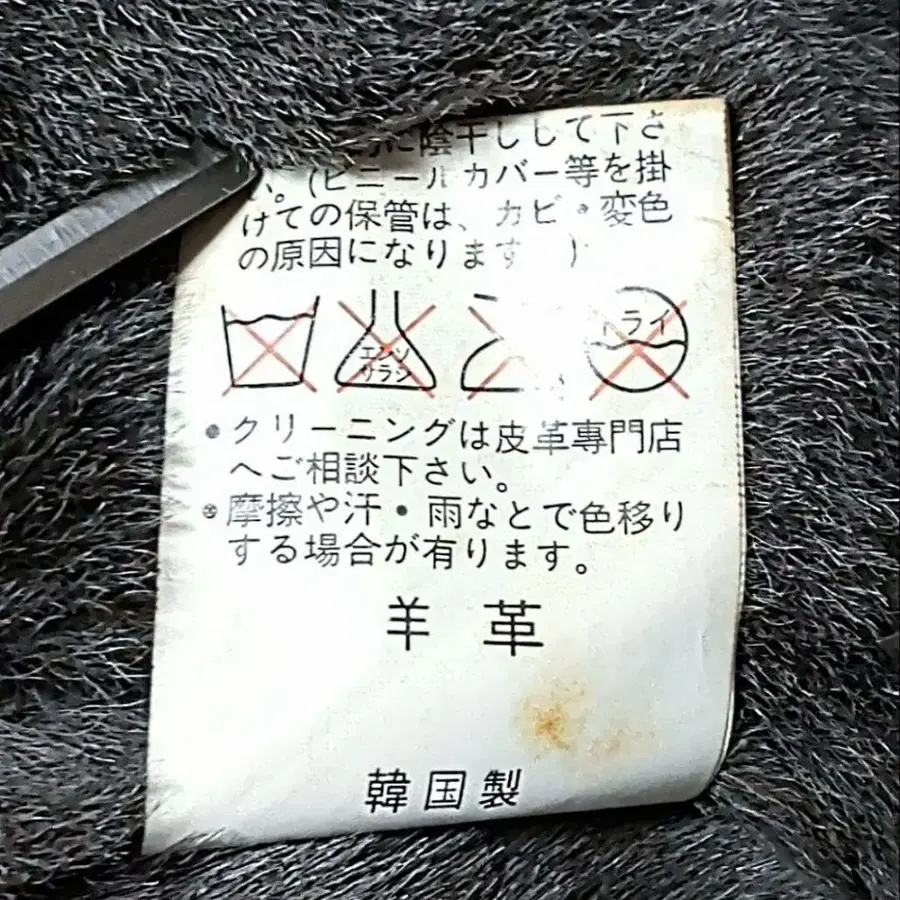 に陰干しして下さ
い。(ビニールカバー等を掛
けての保管は、カビ・変色
の原因になります )
エンソ
サラシ
ドライ
● クリーニングは皮革専門店
へご相談下さい。
● 摩擦や汗・雨などで色移り
する場合が有ります。
羊 革
韓国製